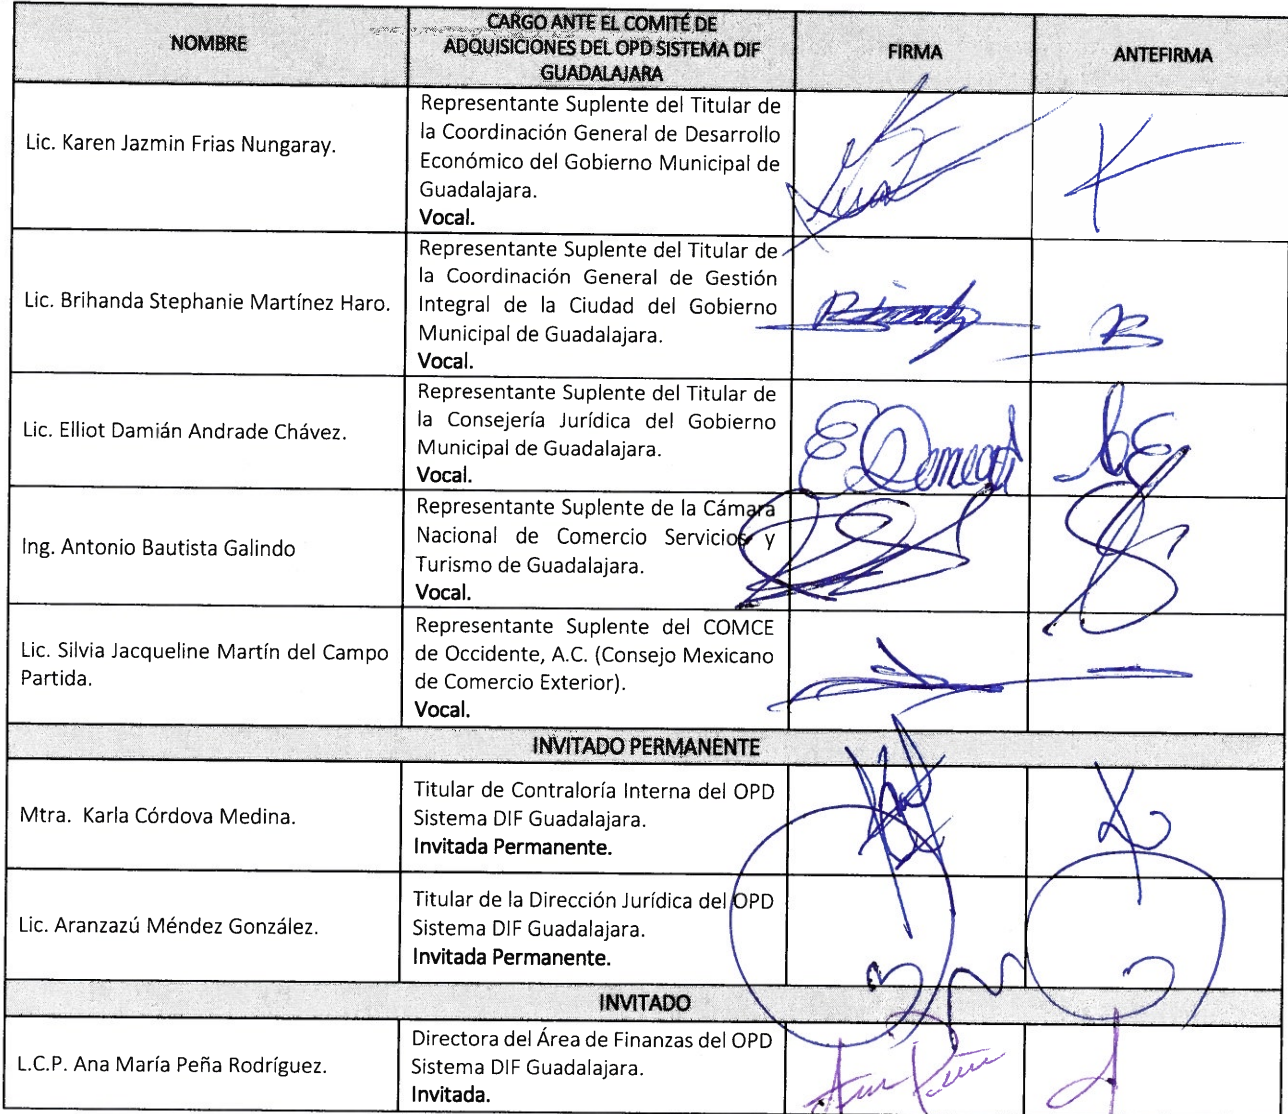 NOMBRE
CARGO ANTE EL COMITÉ DE
ADQUISICIONES DEL OPD SISTEMA DIF
GUADALAJARA
FIRMA
ANTEFIRMA
Lic. Karen Jazmin Frias Nungaray.
Representante Suplente del Titular de
la Coordinación General de Desarrollo
Económico del Gobierno Municipal de
Guadalajara.
Vocal.
Lic. Brihanda Stephanie Martínez Haro.
Representante Suplente del Titular de
la Coordinación General de Gestión
Integral de la Ciudad del Gobierno
Municipal de Guadalajara.
Vocal.
Lic. Elliot Damián Andrade Chávez.
Representante Suplente del Titular de
la Consejería Jurídica del Gobierno
Municipal de Guadalajara.
Vocal.
Ing. Antonio Bautista Galindo
Representante Suplente de la Cámara
Nacional de Comercio Servicios y
Turismo de Guadalajara.
Vocal.
Lic. Silvia Jacqueline Martín del Campo
Partida.
Representante Suplente del COMCE
de Occidente, A.C. (Consejo Mexicano
de Comercio Exterior).
Vocal.
INVITADO PERMANENTE
Mtra. Karla Córdova Medina.
Titular de Contraloría Interna del OPD
Sistema DIF Guadalajara.
Invitada Permanente.
Lic. Aranzazú Méndez González.
Titular de la Dirección Jurídica del OPD
Sistema DIF Guadalajara.
Invitada Permanente.
INVITADO
L.C.P. Ana María Peña Rodríguez.
Directora del Área de Finanzas del OPD
Sistema DIF Guadalajara.
Invitada.